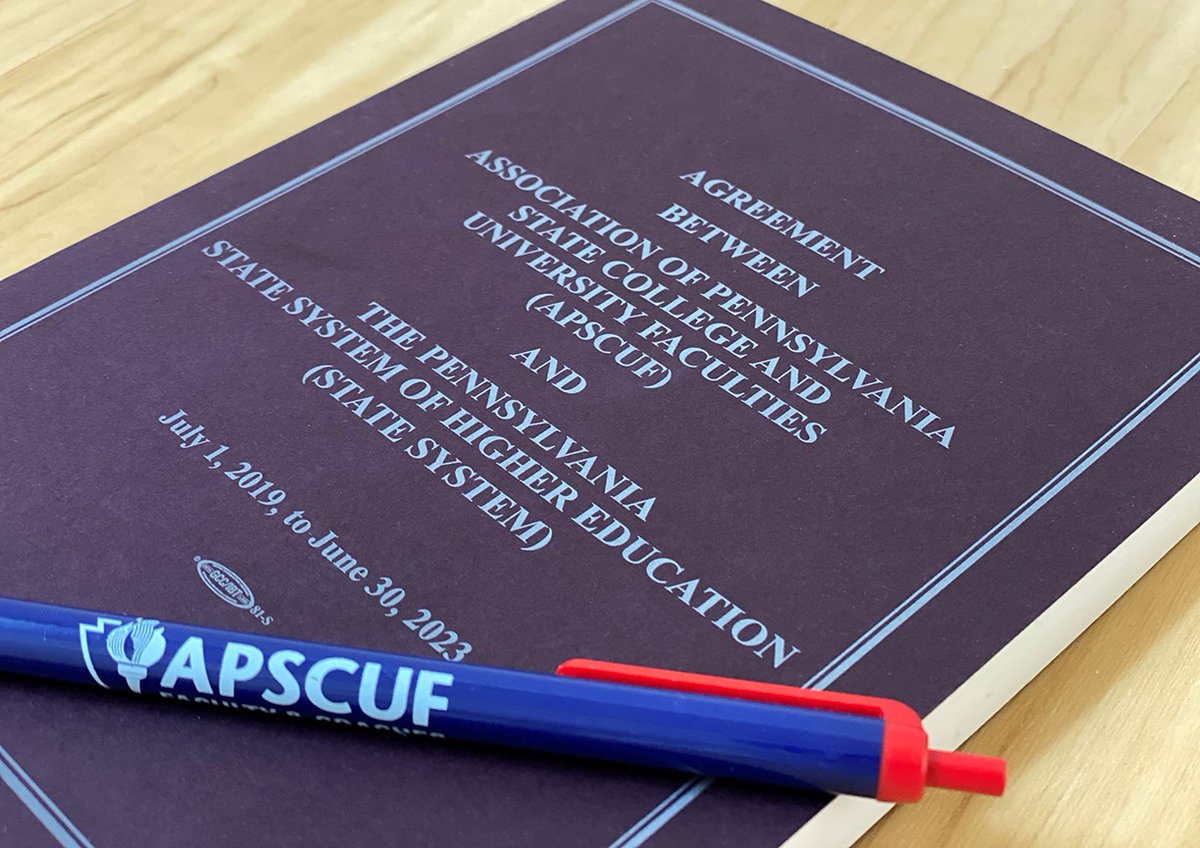 AGREEMENT
BETWEEN
ASSOCIATION OF PENNSYLVANIA
STATE COLLEGE AND
UNIVERSITY FACULTIES
(APSCUF)
AND
THE PENNSYLVANIA
STATE SYSTEM OF HIGHER EDUCATION
(STATE SYSTEM)
July 1, 2019, to June 30, 2023
GCC/IBT
81-S
APSCUF